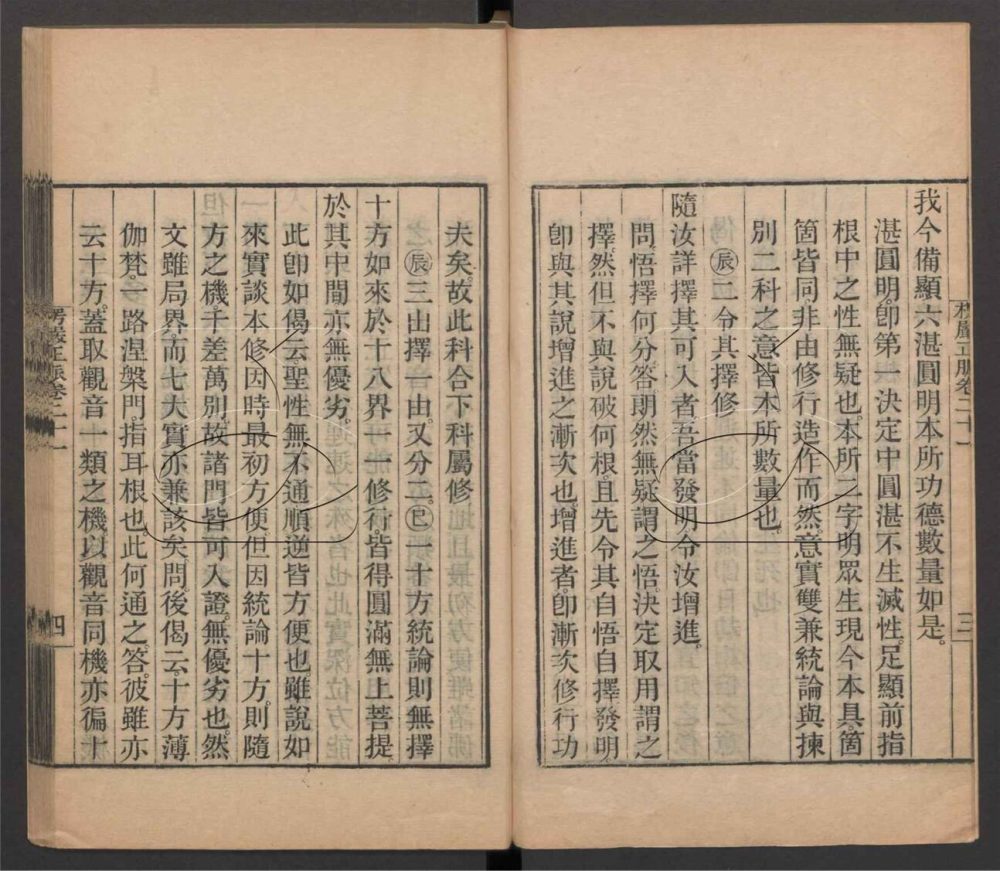 楞嚴正脈卷二十一
三
我今備顯六湛圓明本所功德數量如是。
湛圓明。卽第一決定中圓湛不生滅性。足顯前指
根中之性無疑也。本所二字明眾生現今本具箇
箇皆同。非由修行造作而然。意實雙兼統論與揀
別二科之意。皆本所數量也。
㊀辰二令其擇修
隨汝詳擇其可入者吾當發明令汝增進。
問。悟擇何分。答。朗然無疑謂之悟。決定取用謂之
擇。然但不與說破何根。且先令其自悟自擇。發明
卽與其說增進之漸次也。增進者。卽漸次修行功
夫矣。故此科合下科屬修
之辰三由擇一由。又分二。巳一十方統論則無擇
十方如來於十八界一一修行皆得圓滿無上菩提
於其中間亦無優劣。
此卽如偈云。聖性無不通順逆皆方便也。雖說如
來實談本修因時最初方便。但因統論十方。則隨
方之機千差萬別。故諸門皆可入證。無優劣也。然
文雖局界而七大實亦兼該矣。問。後偈云。十方薄
伽梵。一路涅槃門。指耳根也。此何通之。答。彼雖亦
云十方。蓋取觀音一類之機。以觀音同機亦徧十
楞嚴正脈卷二十一
四